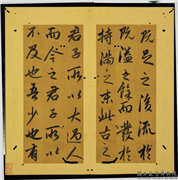 既足之後流於
既溢之餘而發於
持滿之末此古之
君子所以大過人
而今之君子所以
不及也吾少也有